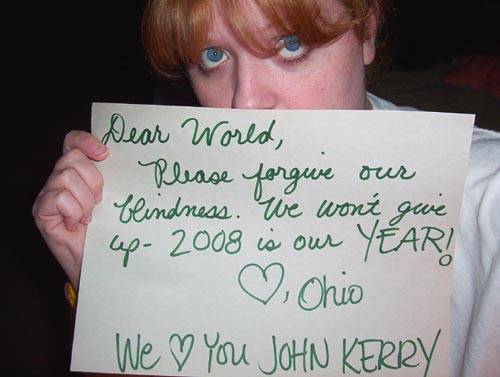 Dear World,
Please forgive our
blindness. We won't give
up- 2008 is our YEAR!
♡, Ohio
We ♡ You JOHN KERRY